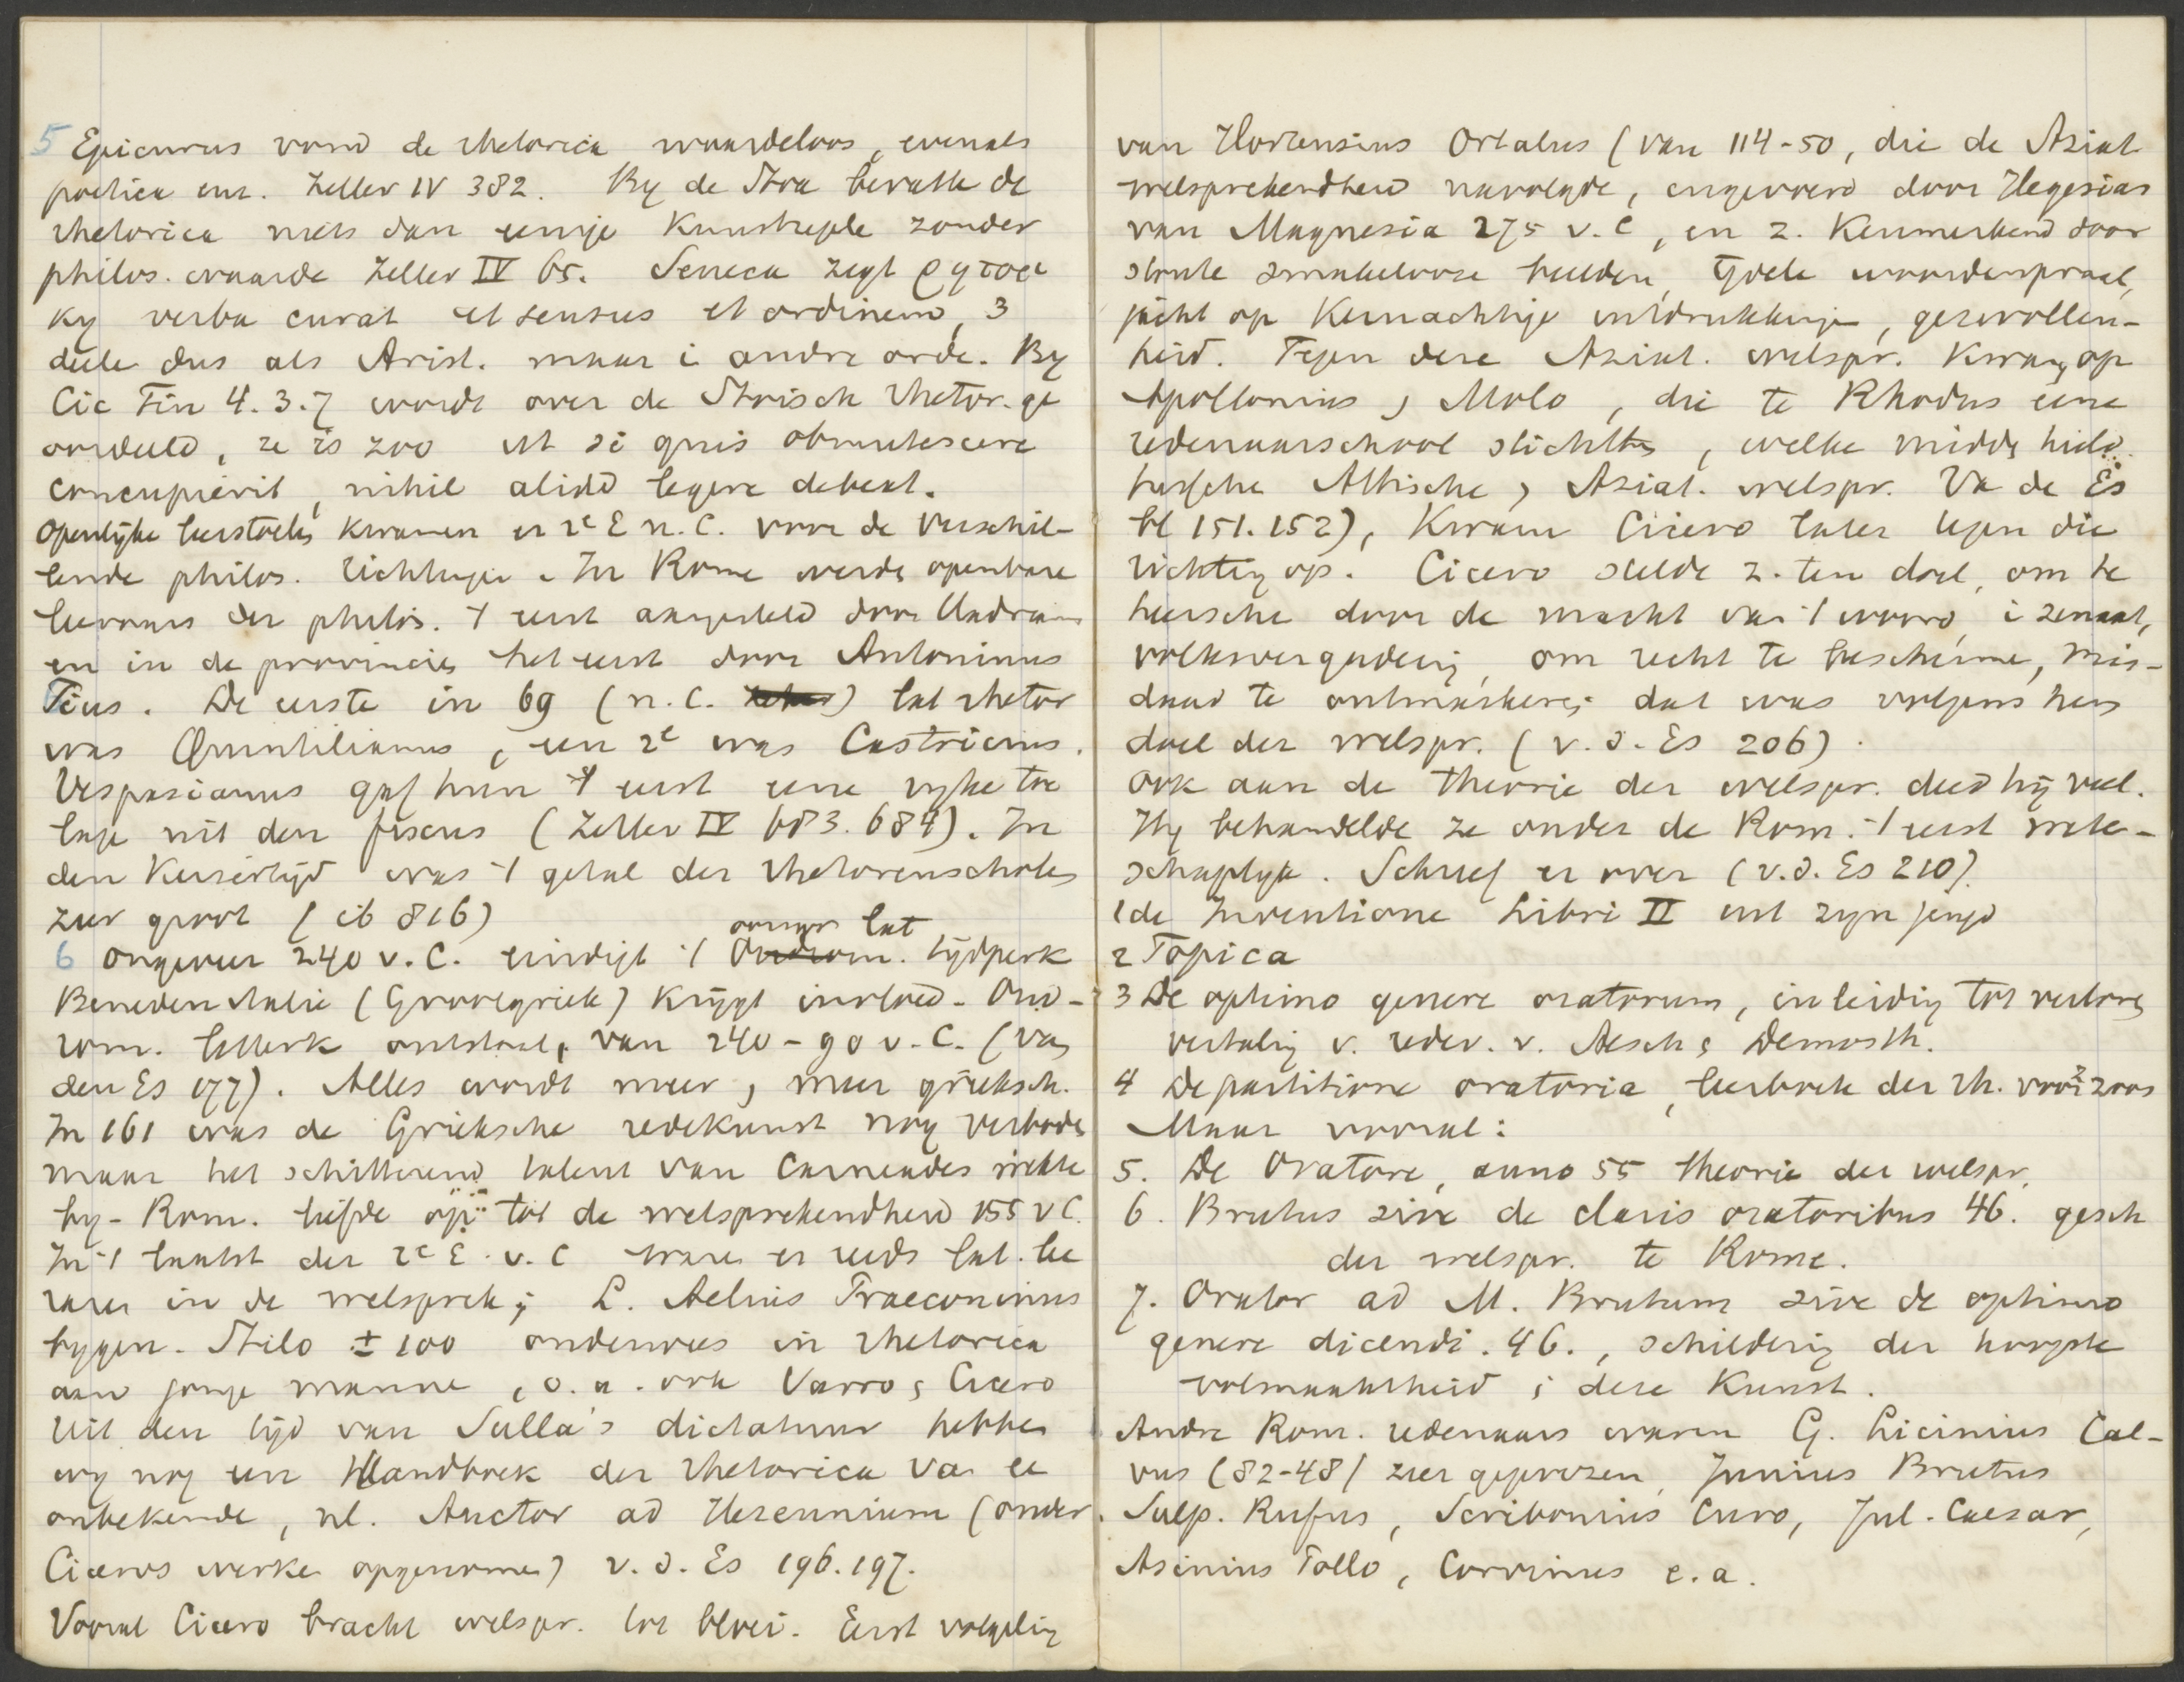 5 Epicurus vond de rhetorica waardeloos, evenals
poetica enz. Zeller IV 382. By de Stoa bevatte de
rhetorica niets dan eenige kunstregels zonder
philos. waarde Zeller IV 65. Seneca zegt
verba curat et sensus et ordinem, 3
deele dus als Arist. maar i andre orde. By
Cic Fin 4.3.7 wordt over de Stoisch rhetor. ge
oordeeld, ze is zoo ut si quis obmutescere
concupierit, nihil aliud legere debeat.
Openlyke leerstoelen kwamen er 2e E n.C. voor de verschil-
lende philos. richtingen. In Rome werden openbare
leeraars der philos. 't eerst aangesteld door Hadrianus
en in de provincies het eerst door Antoninus
Pius. De eerste in 69 (n.C. ) lat rhetor
was Quintilianus, een 2e was Castricius.
Vespasianus gaf hun 't eerst eene ryke toe
lage uit den fiscus (Zeller IV 683.684). In
den Keizertijd was 't getal der rhetorenscholen
zeer groot (ib 816)
oorspr lat
6 Ongeveer 240 v.C. eindigt 't Oudrom. tijdperk
Beneden Italie (Grootgriek) krijgt invloed. Oud-
rom. letterk ontstaat, van 240-90 v.C. (van
den Es 177). Alles wordt meer, meer grieksch.
In 161 was de Grieksche redekunst nog verboden
maar het schitterend talent van Carneades wekte
by - Rom. liefde op tot de welsprekendheid 155 v C.
In 't laatst der 2e E. v.C ware er reeds lat. lee
raren in de welsprek; L. Aelius Praeconinus
bygen. Stilo ± 100 onderwees in rhetorica
aan jonge manne, o.a. ook Varro, Cicero
Uit den tijd van Sulla's dictatuur hebben
wy nog een Handboek der rhetorica va ee
onbekende, nl. Auctor ad Herennium (onder
Ciceros werke opgenome) v.d. Es 196.197.
Vooral Cicero bracht welspr. tot bloei. Eerst volgeling
van Hortensius Ortalus (van 114-50, die de Aziat
welsprekendheid navolgde, ingevoerd door Hegesias
van Magnesia 275 v.C, en z. kenmerkend door
stoute smakelooze beelden, ijdele woordenpraal,
jacht op kernachtige uitdrukkingen, gezwollen-
heid. Tegen deze Aziat. welspr. kwam op
Apollonius, Molo, die te Rhodus eene
redenaarschool stichtte, welke midden hield
tusschen Attische, Aziat. welspr. Va de Es
bl 151.152), kwam Cicero later tegen die
richting op. Cicero stelde z. ten doel, om te
heersche door de macht van 't woord, i senaat,
volksvergadering, om recht te bescherme, mis-
daad te ontmaskeren; dat was volgens hem
doel der welspr. (v.d. Es 206).
Ook aan de theorie der welspr. deed hij veel.
Hy behandelde ze onder de Rom. 't eerst wete-
schaplyk. Schreef er over (v.d. Es 210).
1 de Inventione Libri II uit zyn jeugd
2 Topica
3 De optimo genere oratorum, inleiding tot verloren
vertaling v. redev. v. Aesch, Demosth.
4 De partitione oratoria, leerboek der rh. voor z zoon
Maar vooral:
5. De Oratore, anno 55 theorie der welspr.
6. Brutus sive de claris oratoribus 46. gesch
der welspr. te Rome.
7. Orator ad M. Brutum sive de optimo
genere dicendi. 46., schildering der hoogste
volmaaktheid i deze Kunst.
Andre Rom. redenaars waren G. Licinius Cal-
vus (82-48) zeer geprezen, Junius Brutus
Sulp. Rufus, Scribonius Curo, Jul. Caesar,
Asinius Pollo, Corvinus e.a.